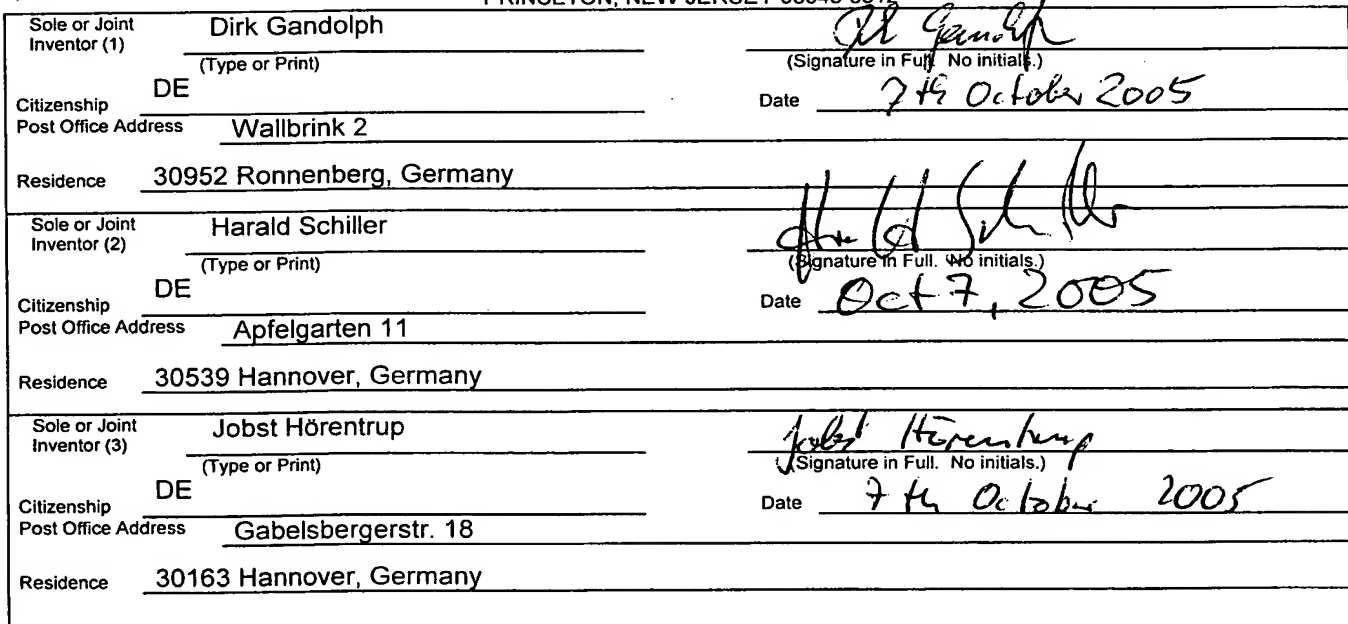 PRINCETON, NEW JERSEY
Sole or Joint Inventor (1) Dirk Gandolph
(Type or Print) (Signature in Full. No initials.)
Citizenship DE Date 7th October 2005
Post Office Address Wallbrink 2
Residence 30952 Ronnenberg, Germany
Sole or Joint Inventor (2) Harald Schiller
(Type or Print) (Signature in Full. No initials.)
Citizenship DE Date Oct 7, 2005
Post Office Address Apfelgarten 11
Residence 30539 Hannover, Germany
Sole or Joint Inventor (3) Jobst Hörentrup Jobst Hörentrup
(Type or Print) (Signature in Full. No initials.)
Citizenship DE Date 7th October 2005
Post Office Address Gabelsbergerstr. 18
Residence 30163 Hannover, Germany